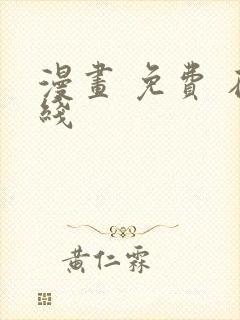 漫畫 免費
綫
黃仁霖